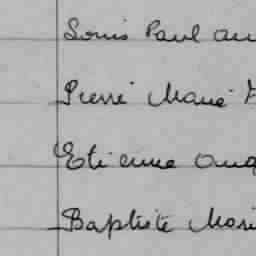 Louis Paul au
Pierre Marie
Etienne Aug
Baptiste Mari